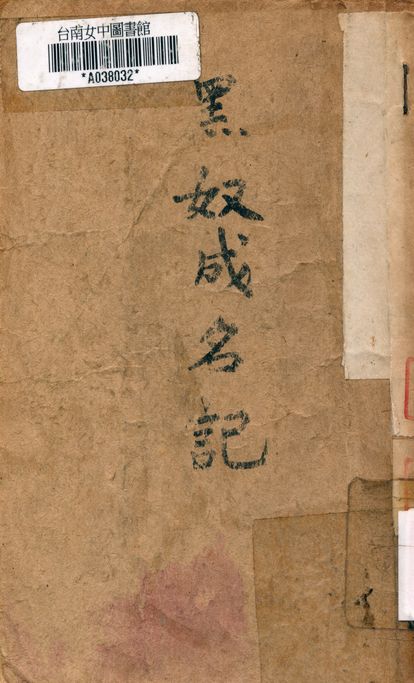 台南女中圖書館
*A038032*
黑奴成名記